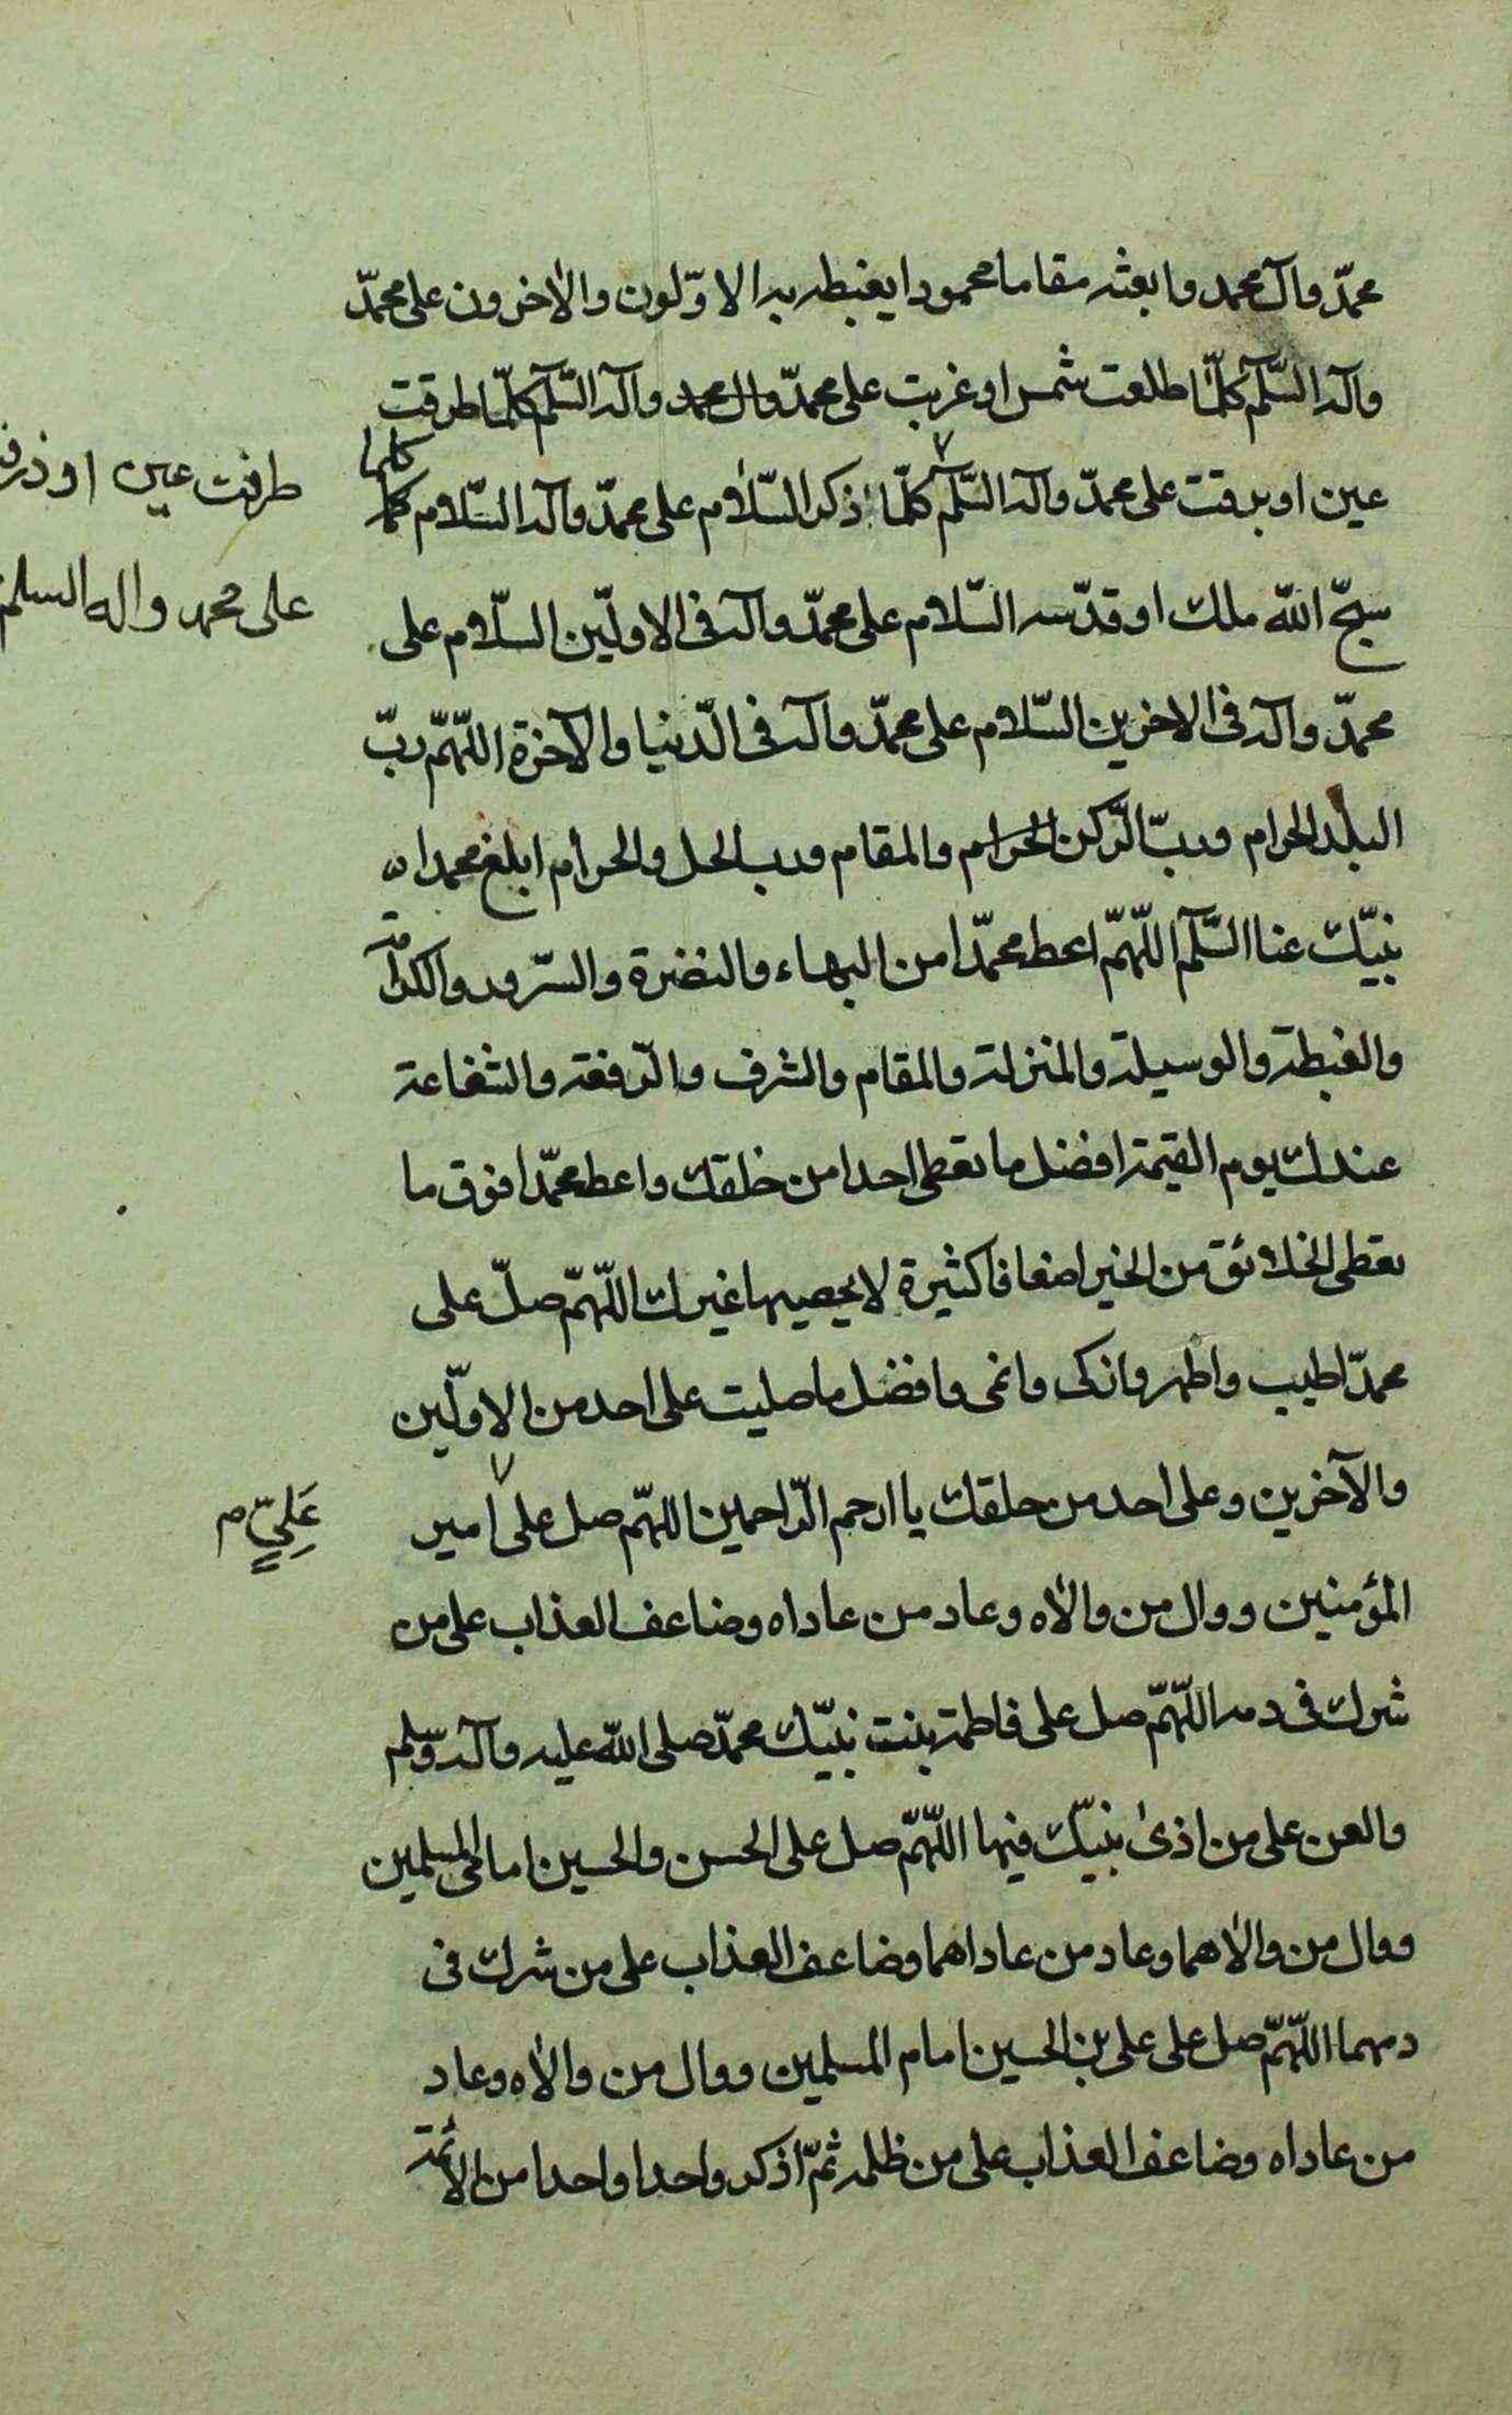 محمّد وآل محمد وابعثه مقاما محمودا يغبطه به الاوّلون والاخرون على محمّد
وآله السّلم كلّما طلعت شمس او غربت على محمّد وال محمد وآله السّلم كلّما طرقت
عين او برقت على محمّد وآله السّلم كلّما ذكر السّلام على محمّد وآله السّلام كلما
كلما
طرفت عين او ذرفت
سبّح الله ملك او قدّسه السّلام على محمّد وآله فى الاولّين السّلام على
على محمد واله السلم
محمّد وآله فى الاخرين السّلام على محمّد وآله فى الدّنيا والآخرة اللّهمّ ربّ
البلد الحرام وربّ الرّكن الحرام والمقام ورب الحل والحرام ابلغ محمدا
نبيّك عنا السّلم اللّهمّ اعط محمّدا من البهاء والنضرة والسّرور والكرامة
والغبطة والوسيلة والمنزلة والمقام والشرف والرّفعة والشفاعة
عندك يوم القيمة افضل ما تعطى احدا من خلقك واعط محمّدا فوق ما
تعطى الخلائق من الخير اضعافا كثيرة لا يحصيها غيرك اللّهمّ صلّ على
محمّد اطيب واطهر وازكى وانمى وافضل ما صليت على احد من الاولّين
والآخرين وعلى احد من خلقك يا ارحم الرّاحمين اللهمّ صل على امير
عَلِيٍّ م
المؤمنين ووال من والاه وعاد من عاداه وضاعف العذاب على من
شرك فى دمه اللّهمّ صل على فاطمة بنت نبيّك محمّد صلى الله عليه وآله وسّلم
والعن على من اذى نبيّك فيها اللّهمّ صل على الحسن والحسين امامى المسلمين
ووال من والاهما وعاد من عاداهما وضاعف العذاب على من شرك فى
دمهما اللّهمّ صل على على بن الحسين امام المسلمين ووال من والاه وعاد
من عاداه وضاعف العذاب على من ظلمه ثمّ اذكر واحدا واحدا من الائمة